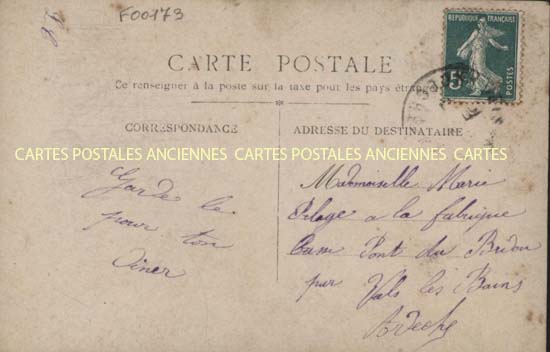 F00173
18
RÉPUBLIQUE FRANÇAISE
5c
POSTES
CARTE POSTALE
Ce renseigner à la poste sur la taxe pour les pays étrang
CORRESPONDANCE
ADRESSE DU DESTINATAIRE
CARTES POSTALES ANCIENNES CARTES POSTALES ANCIENNES CARTES
Garde le
pour ton
diner
Mademoiselle Marie
a la fabrique
Pont du Bridou
par Vals les Bains
Ardeche